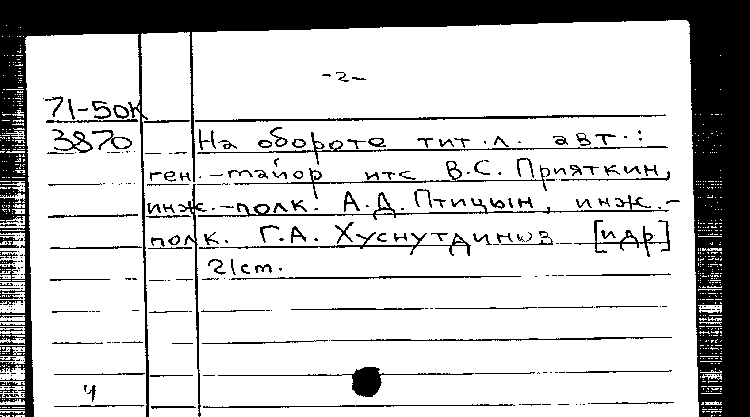 -2-
71-50К
3870 На обороте тит.л. авт.:
ген.-майор итс В.С. Прияткин,
инж.-полк. А.Д. Птицын, инж.-
полк. Г.А. Хуснутдинов [и др]
21см.
4